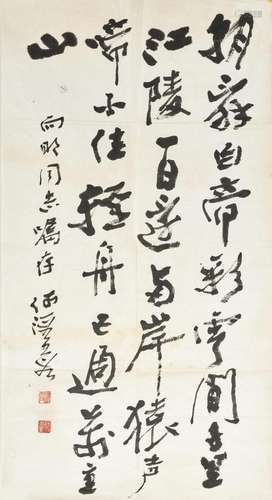 朝辞白帝彩雲间千里
江陵一日還两岸猿声
啼不住輕舟已過萬重
山
向明同志嘱存